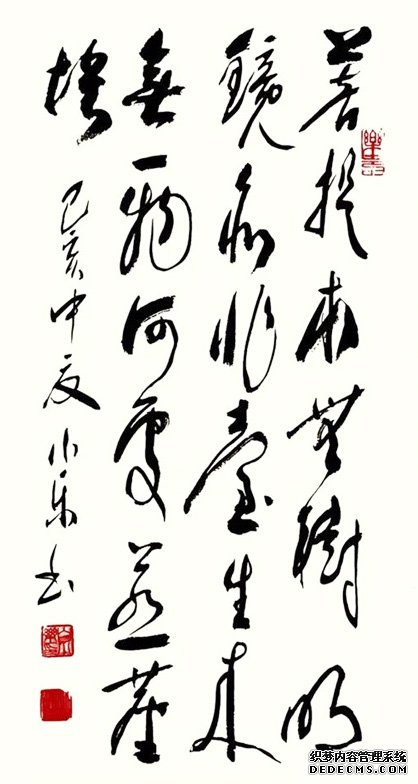 菩提本無樹明
鏡亦非臺生来
無一物何處惹塵
埃
己亥中夏小乐书
织梦内容管理系统
DEDECMS.COM